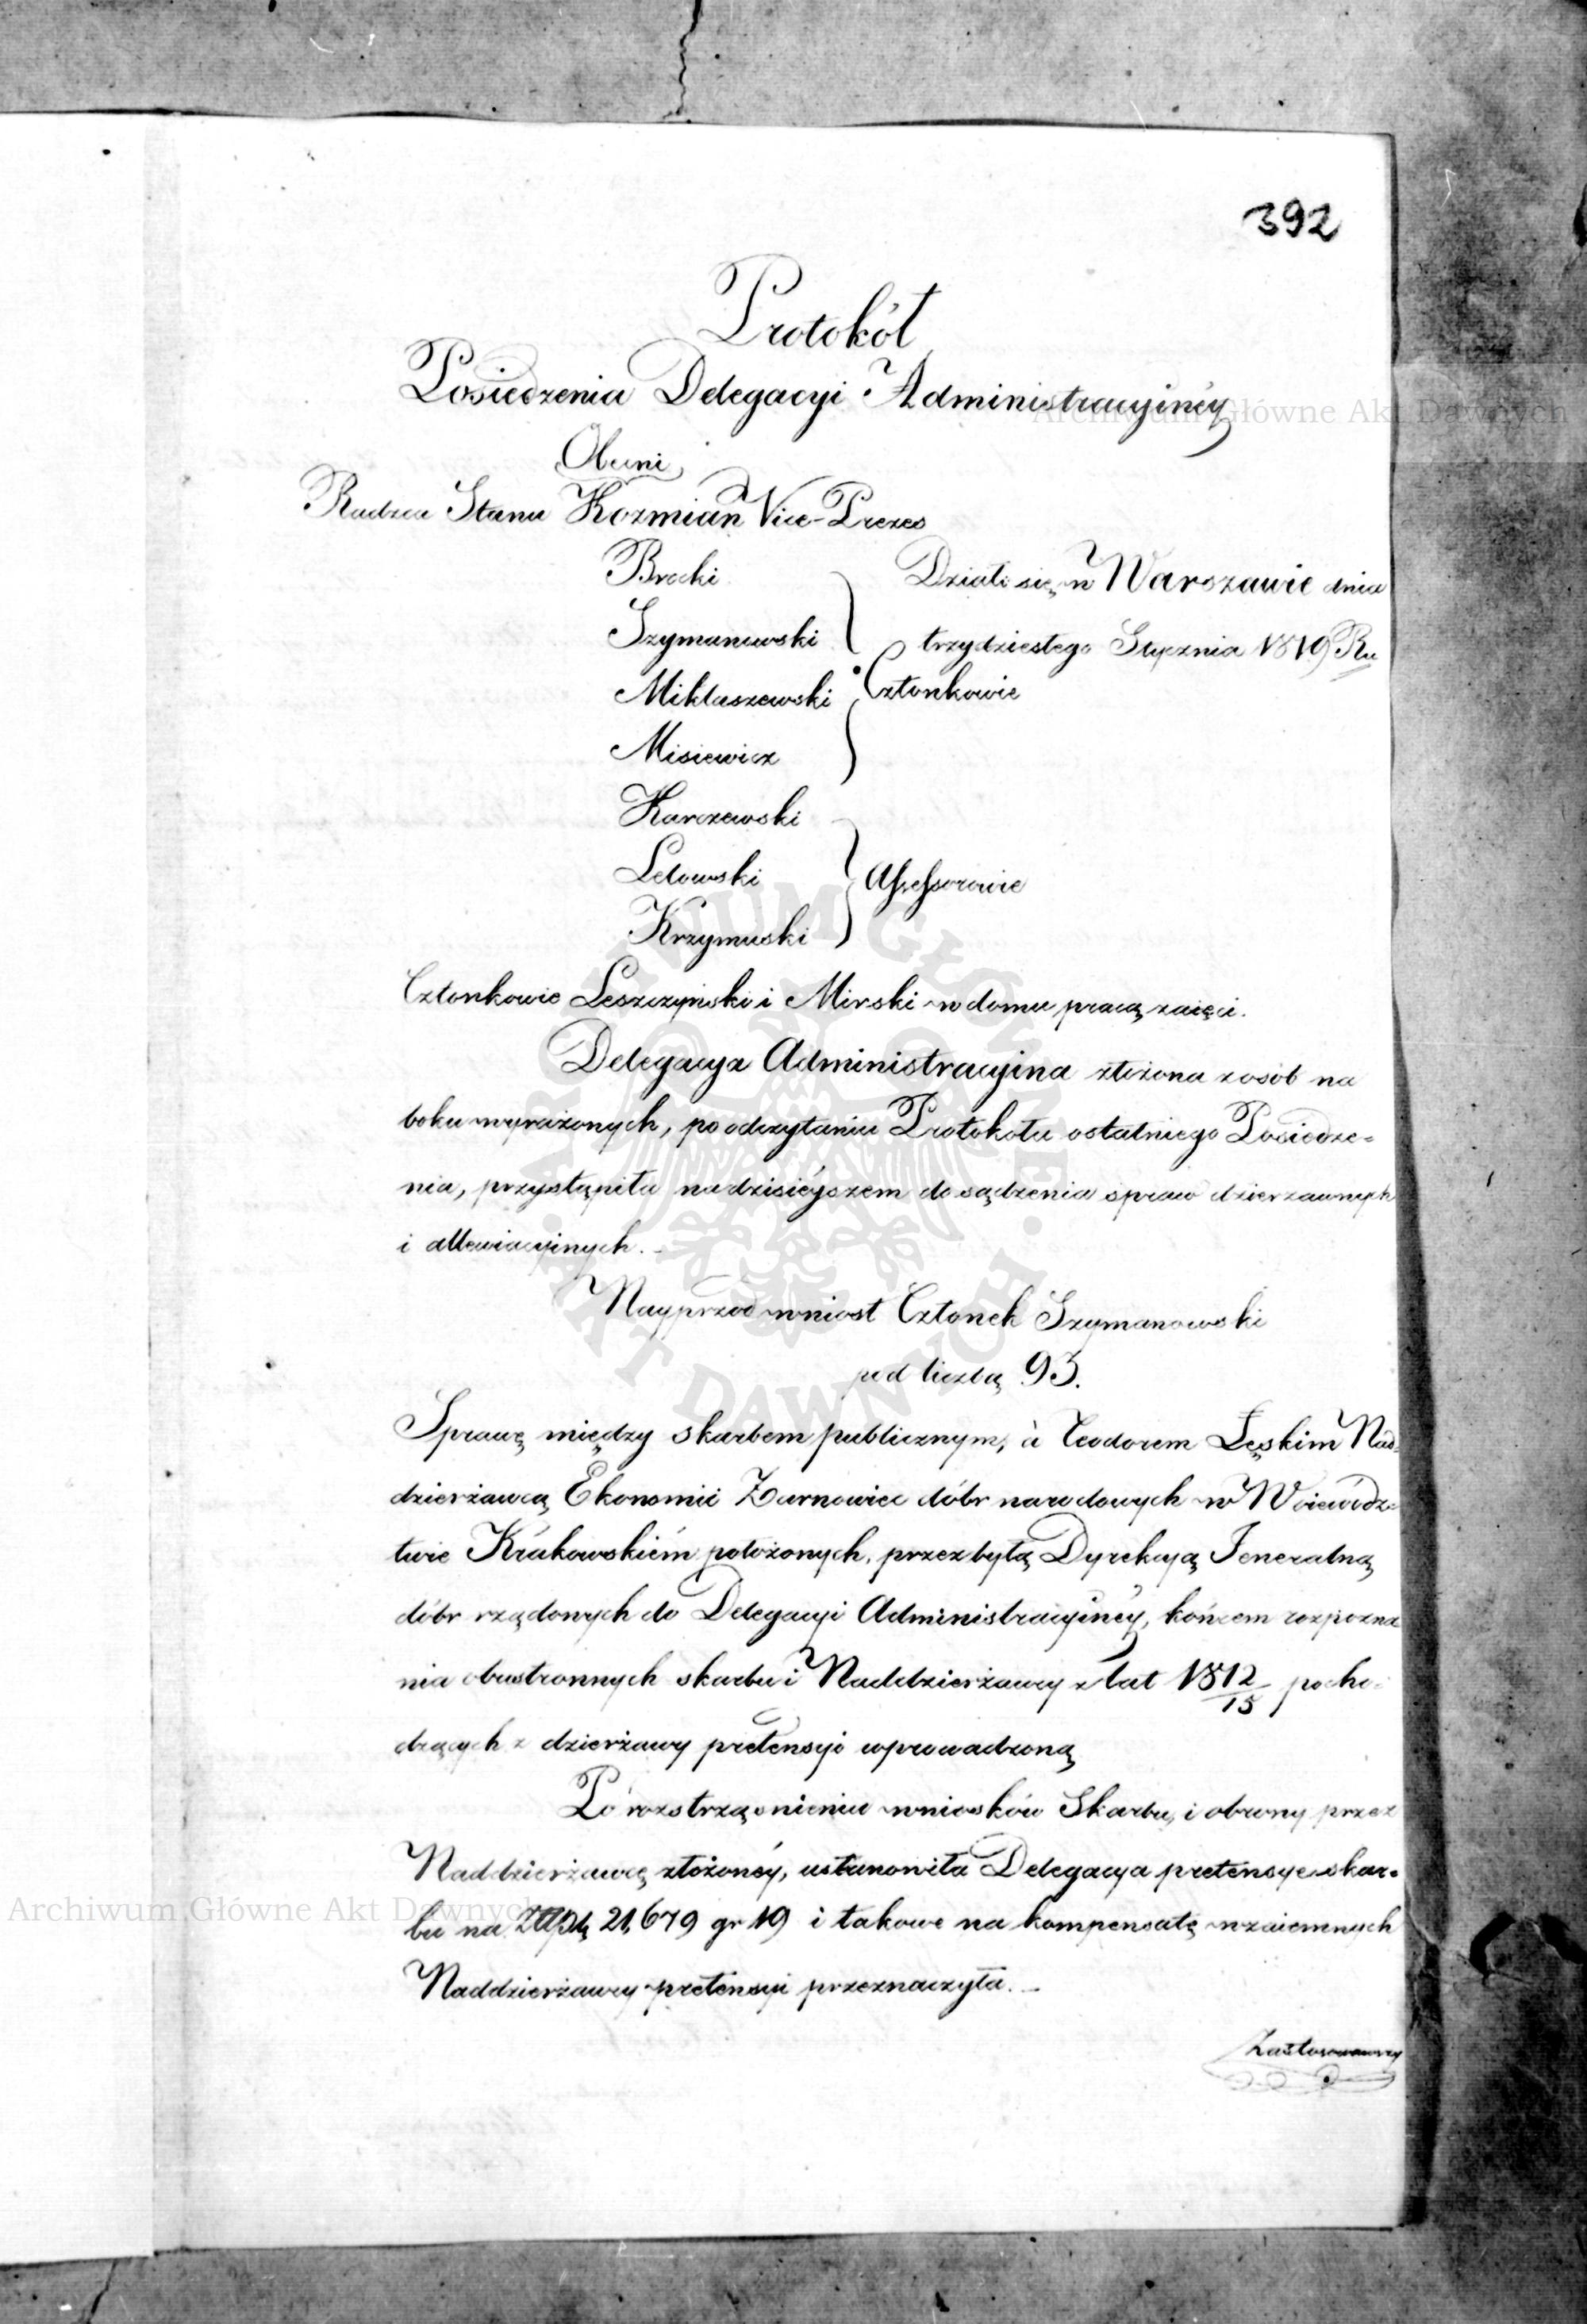 392
Protokół
Posiedzenia Delegacyi Administracyinéy
Obecni
Radzca Stanu Kozmian Vice-Prezes
Brocki
Działo się w Warszawie dnia
Szymanowski
trzydziestego Stycznia 1819 Ru
Mikłaszewski
Członkowie
Misiewicz
Karczewski
Letowski
Assessorowie
Krzymuski
Członkowie Leszczyński i Mirski w domu pracą zaięci.
Delegacya Administracyina złożona z osób na
boku wyrażonych, po odczytaniu Protokołu ostatniego Posiedze=
nia, przystąpiła na dzisiéyszem do sądzenia spraw dzierzawnych
i allewiacyinych. –
Nayprzód wniosł Członek Szymanowski
pod liczbą 93.
Sprawę między skarbem publicznym, à Teodorem Łęskim Nad=
dzierżawcą Ekonomii Żarnowiec dóbr narodowych w Woiewódz=
twie Krakowskiém położonych, przez byłą Dyrekcyą Jeneralną
dóbr rządowych do Delegacyi Administracyinéy, końcem rozpozna
nia obustronnych skarbu i Naddzierżawcy z lat 1812/15 pocho=
dzących z dzierżawy pretensyi wprowadzoną
Po rozstrząśnieniu wniosków Skarbu, i obrony przez
Naddzierżawcę złożonéy, ustanowiła Delegacya pretensye skar=
bu na Złpl 21,679 gr 19 i takowe na kompensatę wzaiemnych
Naddzierżawcy pretensyi przeznaczyła. –
Zastosowawszy
Archiwum Główne Akt Dawnych
Archiwum Główne Akt Dawnych
ARCHIWUM GŁÓWNE AKT DAWNYCH